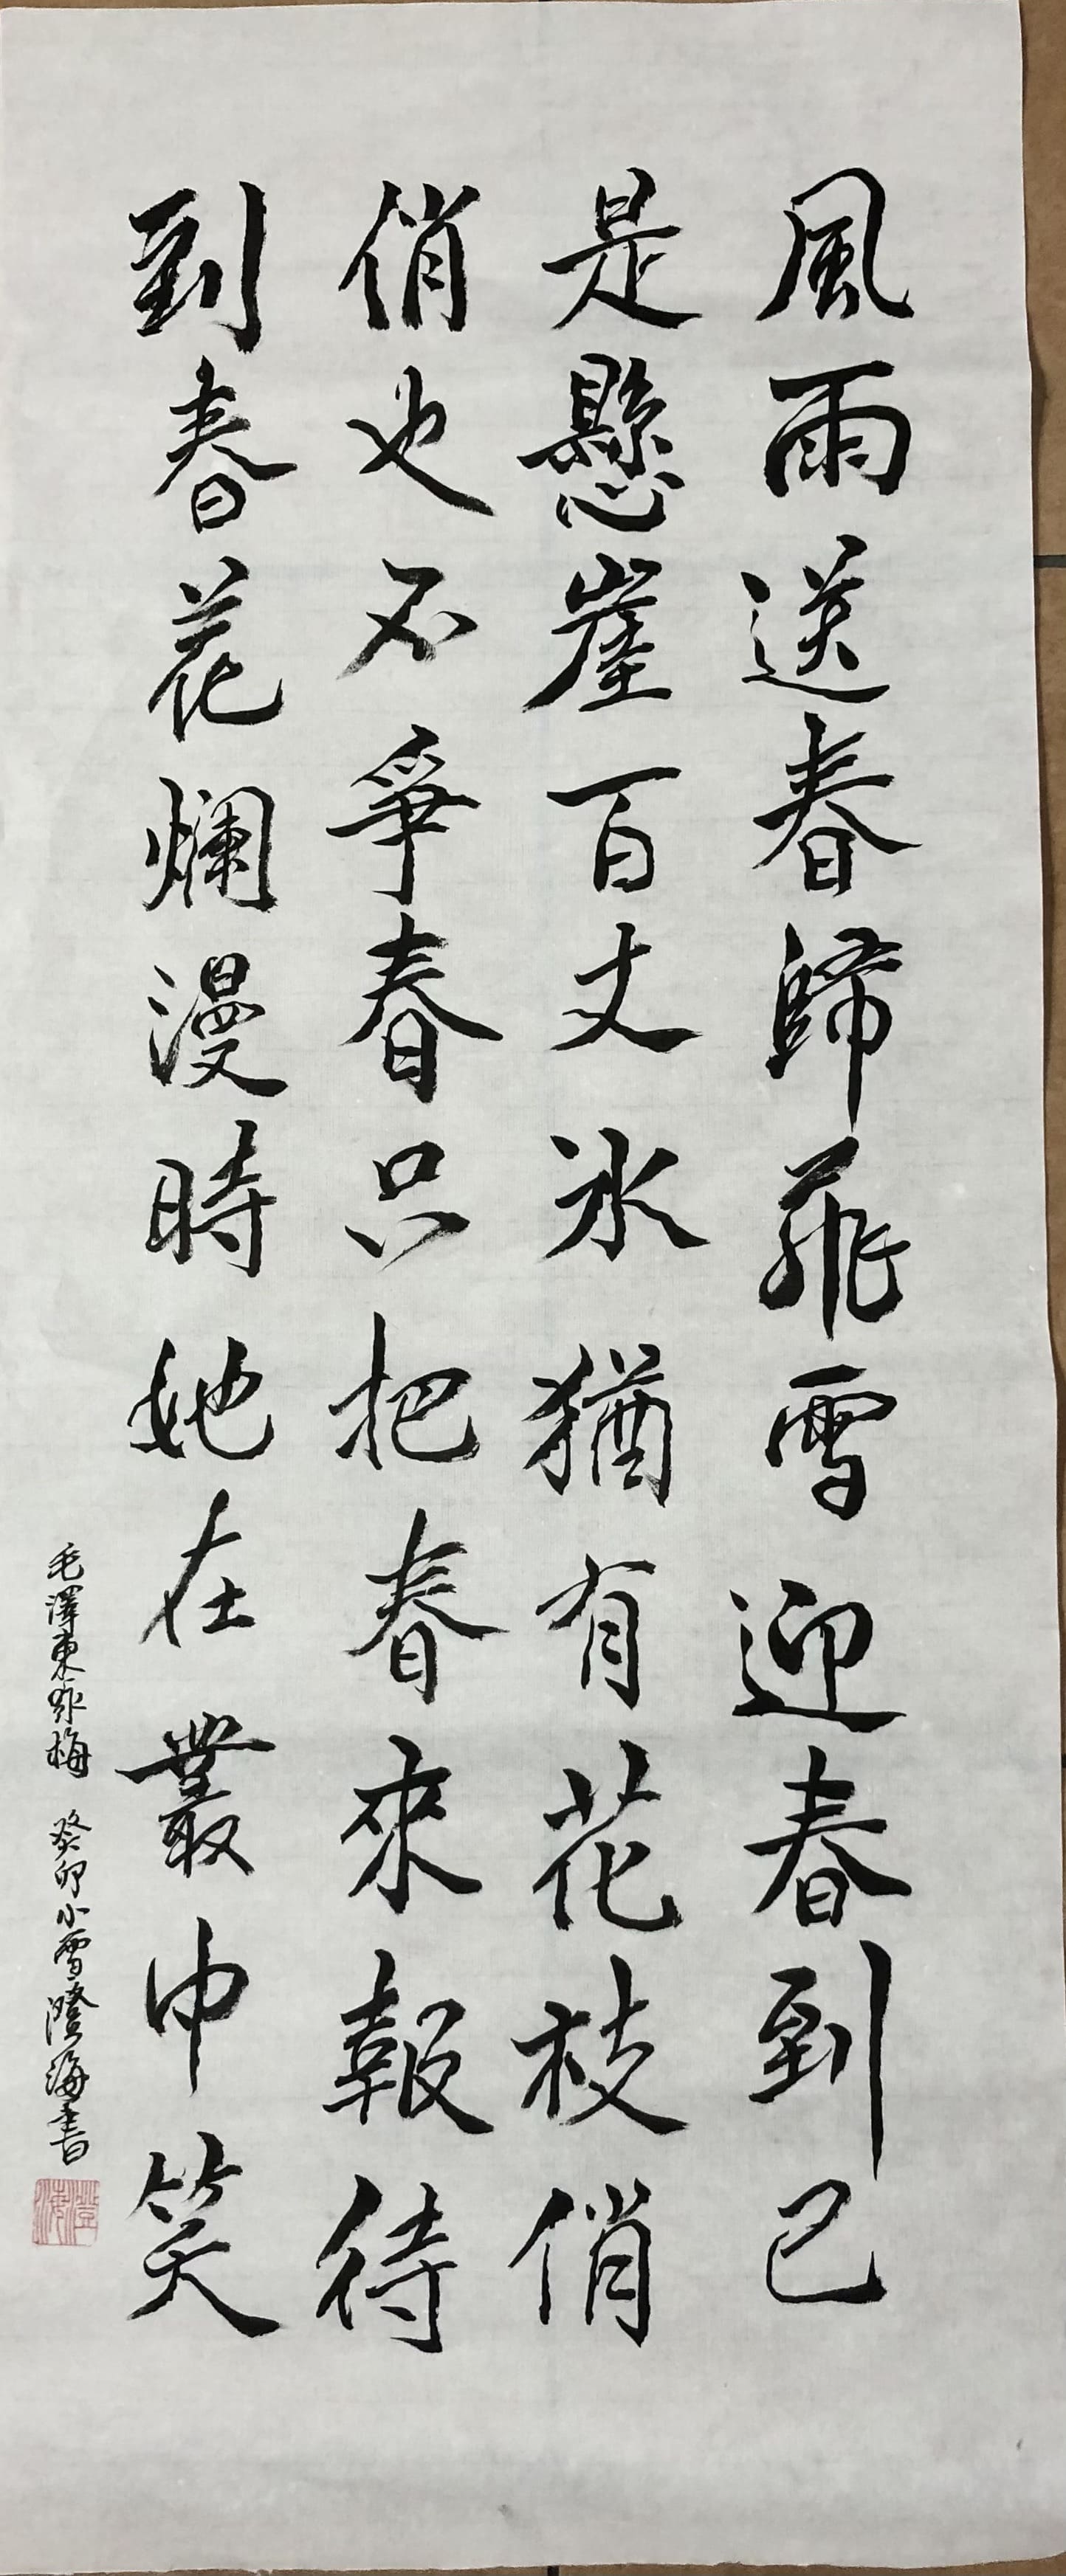 風雨送春歸飛雪迎春到已
是懸崖百丈冰猶有花枝俏
俏也不爭春只把春來報待
到春花爛漫時她在叢中笑
毛澤東詠梅 癸卯小雪澄海書
澄海